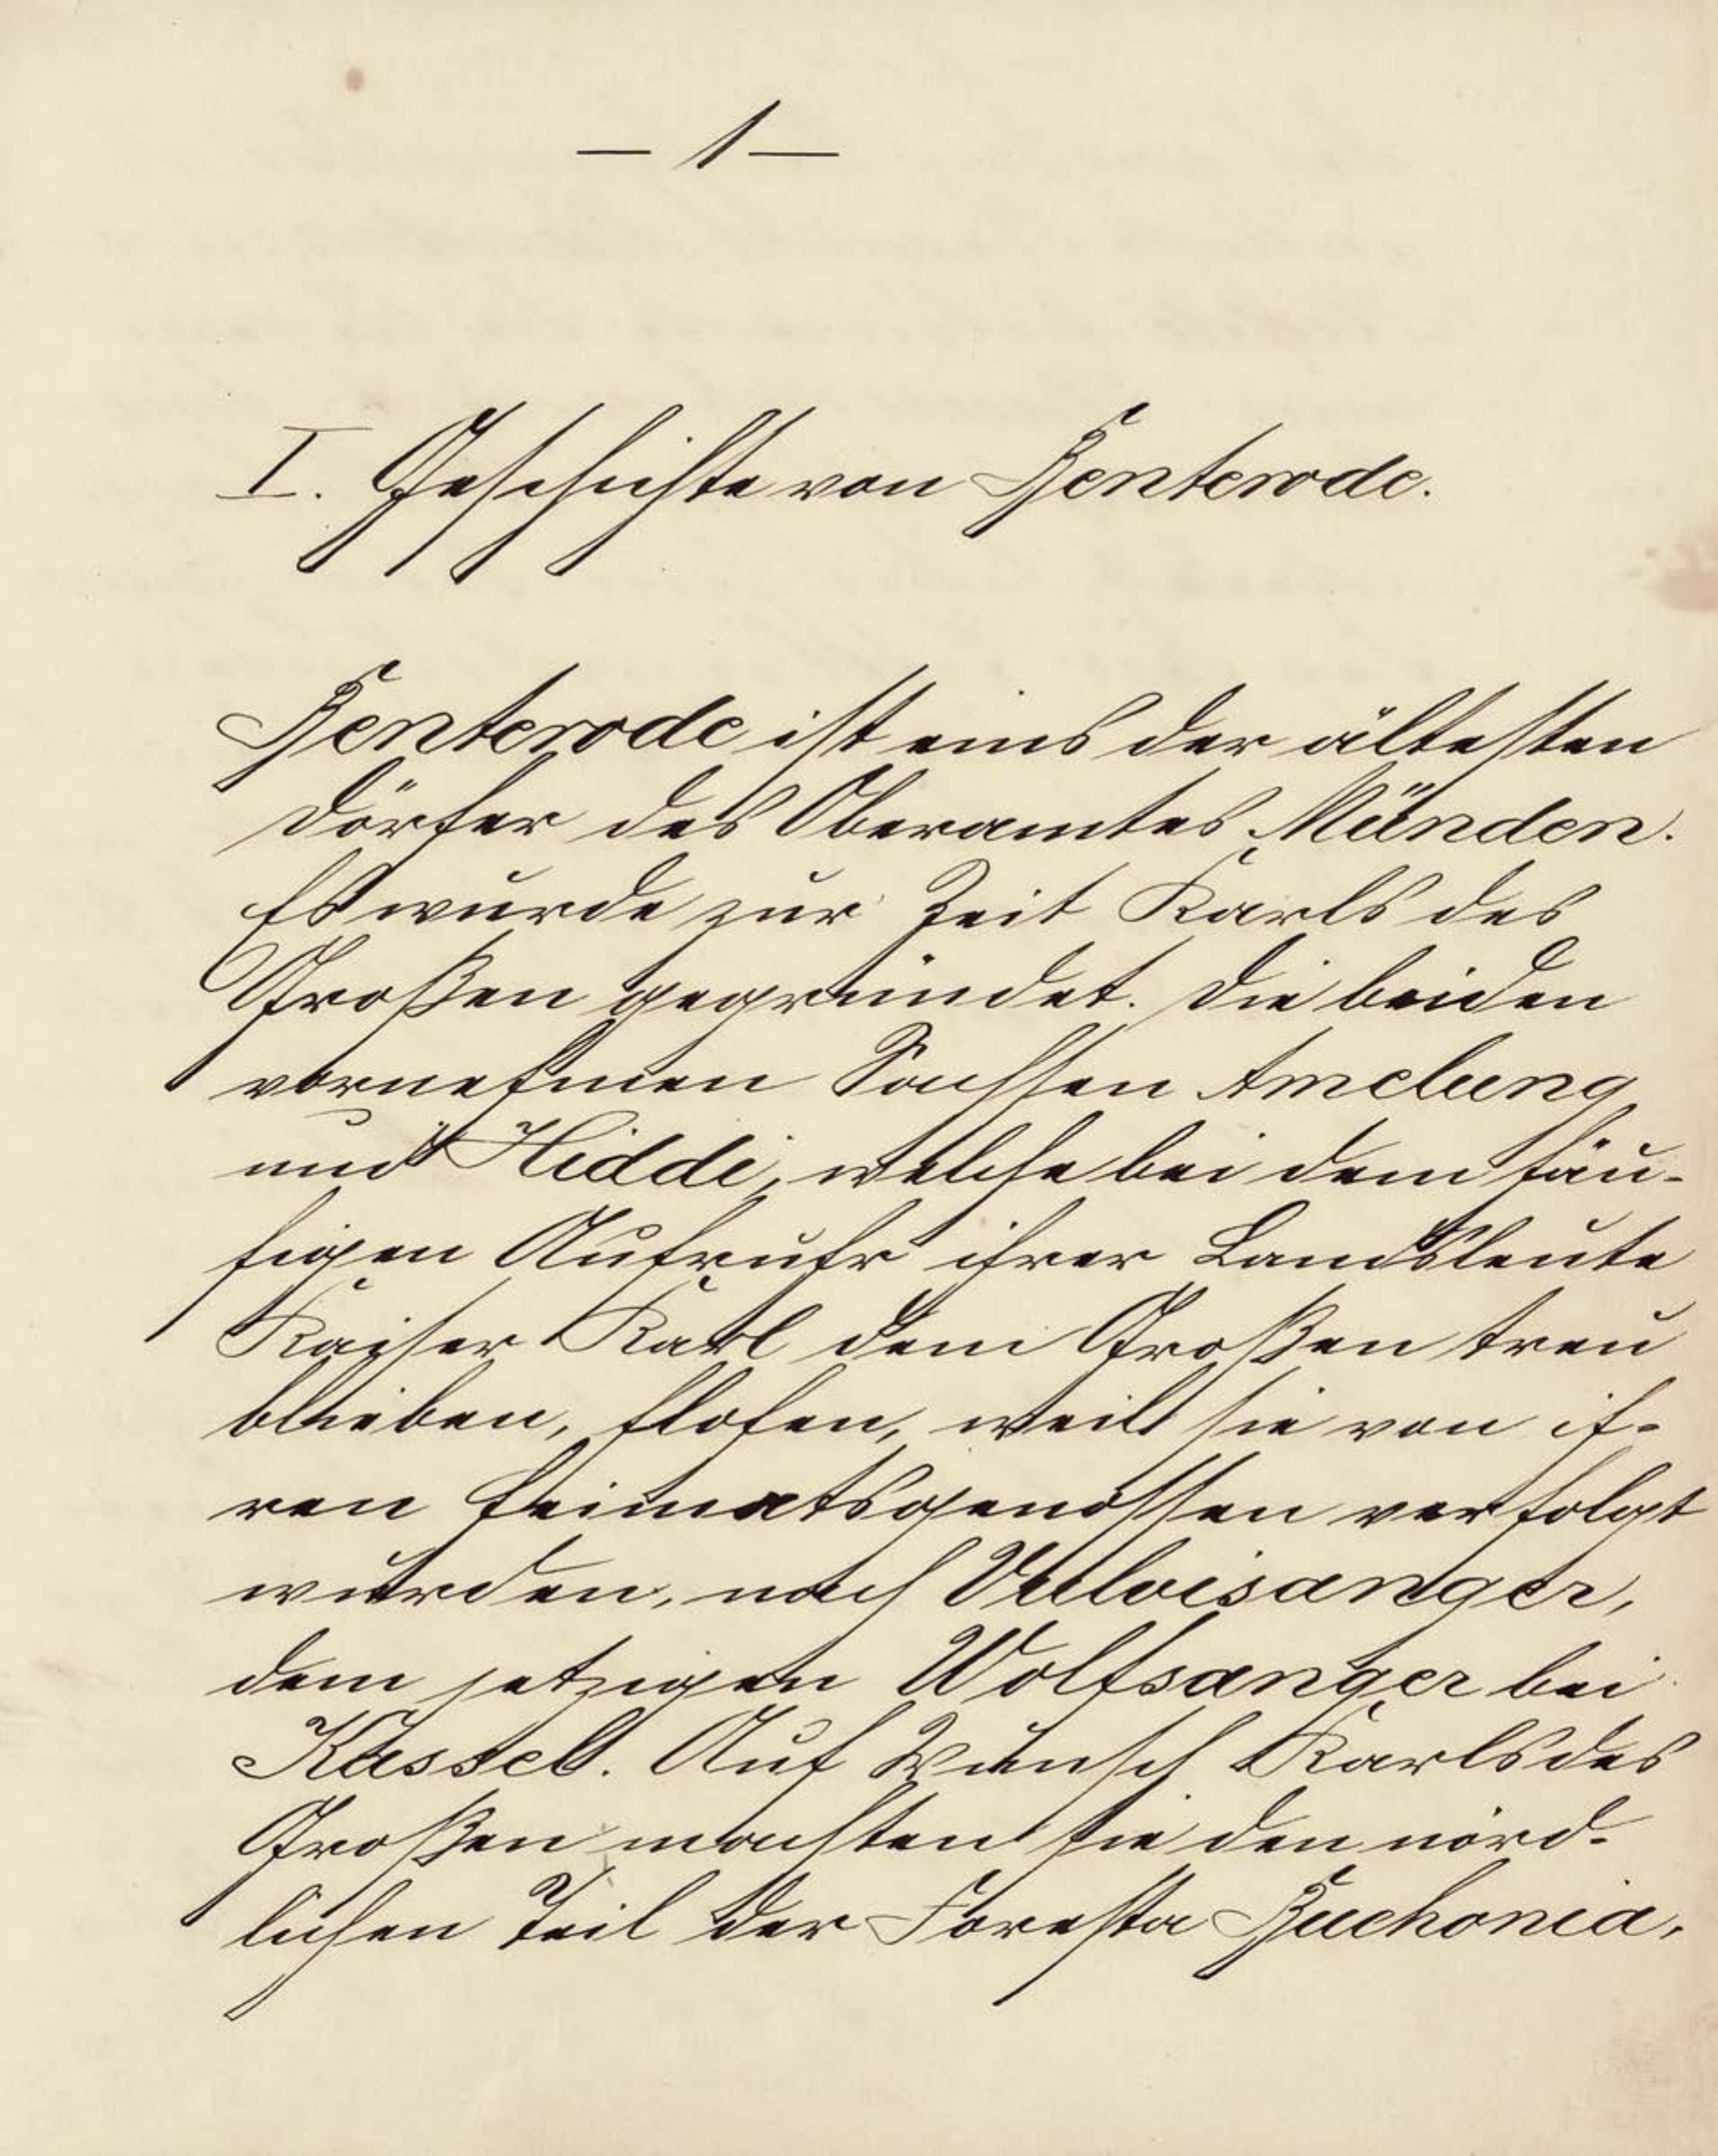 — 1 —
I. Geschichte von Benterode.
Benterode ist eins der ältesten
Dörfer des Oberamtes Münden.
Es wurde zur Zeit Karls des
Großen gegründet. Die beiden
vornehmen Sachsen Amelung
und Hiddi, welche bei dem häu-
figen Aufruhr ihrer Landsleute
Kaiser Karl dem Großen treu
blieben, flohen, weil sie von ih-
ren Heimatsgenossen verfolgt
wurden, nach Vulvisanger,
dem jetzigen Wolfsanger bei
Kassel. Auf Wunsch Karls des
Großen machten sie den nörd-
lichen Teil der Foresta Buchonia,